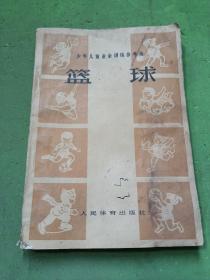 少年儿童业余训练参考书
篮球
人民体育出版社